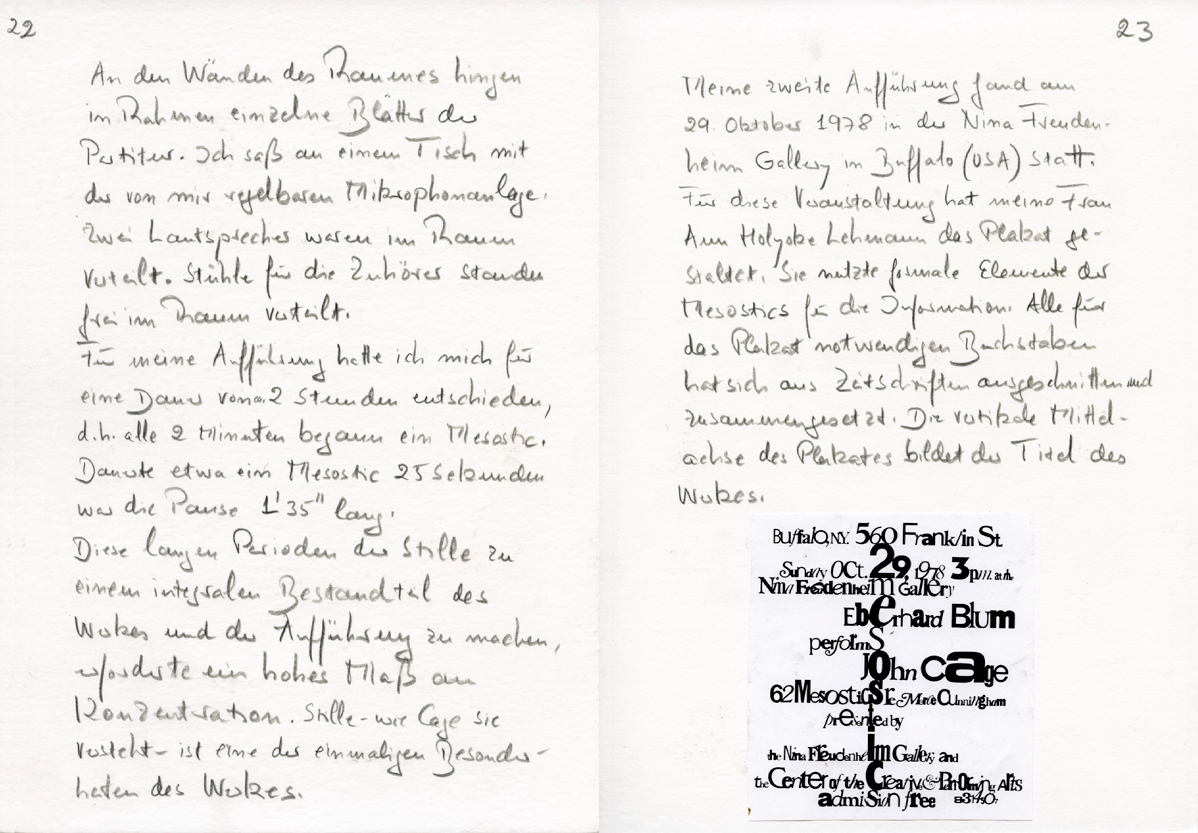 22
An den Wänden des Raumes hingen
in Rahmen einzelne Blätter der
Partitur. Ich saß an einem Tisch mit
der von mir regelbaren Mikrophonanlage.
Zwei Lautsprecher waren im Raum
verteilt. Stühle für die Zuhörer standen
frei im Raum verteilt.
Für meine Aufführung hatte ich mich für
eine Dauer von 2 Stunden entschieden,
d.h. alle 2 Minuten begann ein Mesostic.
Dauerte etwa ein Mesostic 25 Sekunden
war die Pause 1'35" lang.
Diese langen Perioden der Stille zu
einem integralen Bestandteil des
Werkes und der Aufführung zu machen,
erforderte ein hohes Maß an
Konzentration. Stille – wie Cage sie
versteht – ist eine der einmaligen Besonder-
heiten des Werkes.
23
Meine zweite Aufführung fand am
29. Oktober 1978 in der Nina Freuden-
heim Gallery in Buffalo (USA) statt.
Für diese Veranstaltung hat meine Frau
Ann Holyoke Lehmann das Plakat ge-
staltet. Sie nutzte formale Elemente der
Mesostics für die Information. Alle für
das Plakat notwendigen Buchstaben
hat sie aus Zeitschriften ausgeschnitten und
zusammengesetzt. Die vertikale Mittel-
achse des Plakates bildet der Titel des
Werkes.
Buffalo, N.Y. 560 Franklin St.
Sunday Oct. 29, 1978 3 p.m. at the
Nina Freudenheim Gallery
Eberhard Blum
performs
John Cage
62 Mesostics re Merce Cunningham
presented by
the Nina Freudenheim Gallery and
the Center of the Creative & Performing Arts
admission free 831-4507